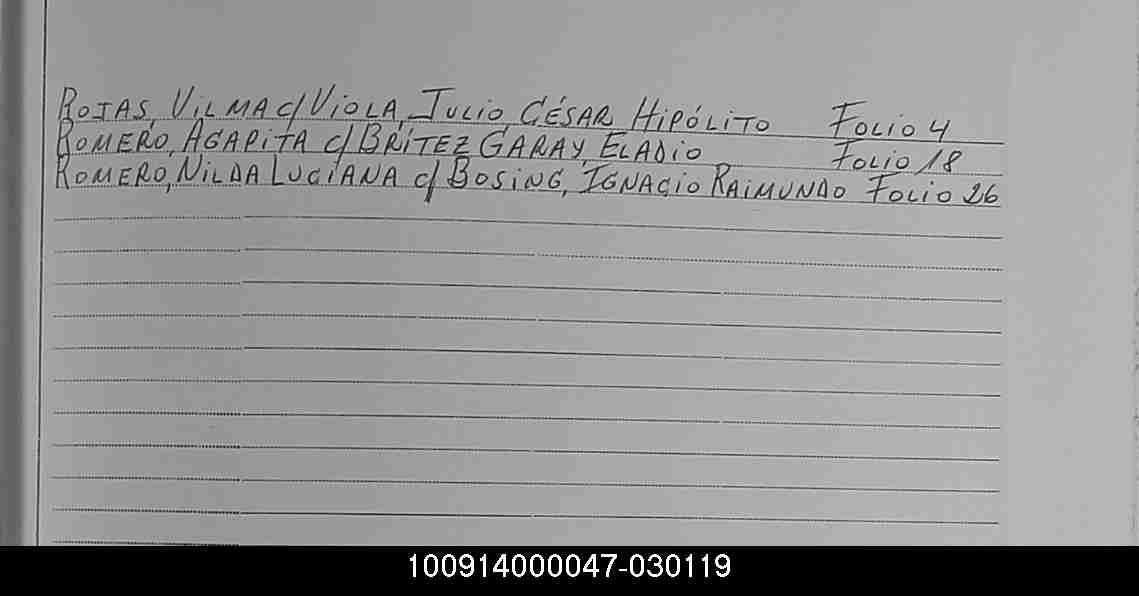 ROJAS, VILMA c/ VIOLA, JULIO CÉSAR HIPÓLITO FOLIO 4
ROMERO, AGAPITA c/ BRÍTEZ GARAY, ELADIO FOLIO 18
ROMERO, NILDA LUCIANA c/ BOSING, IGNACIO RAIMUNDO FOLIO 26
100914000047-030119